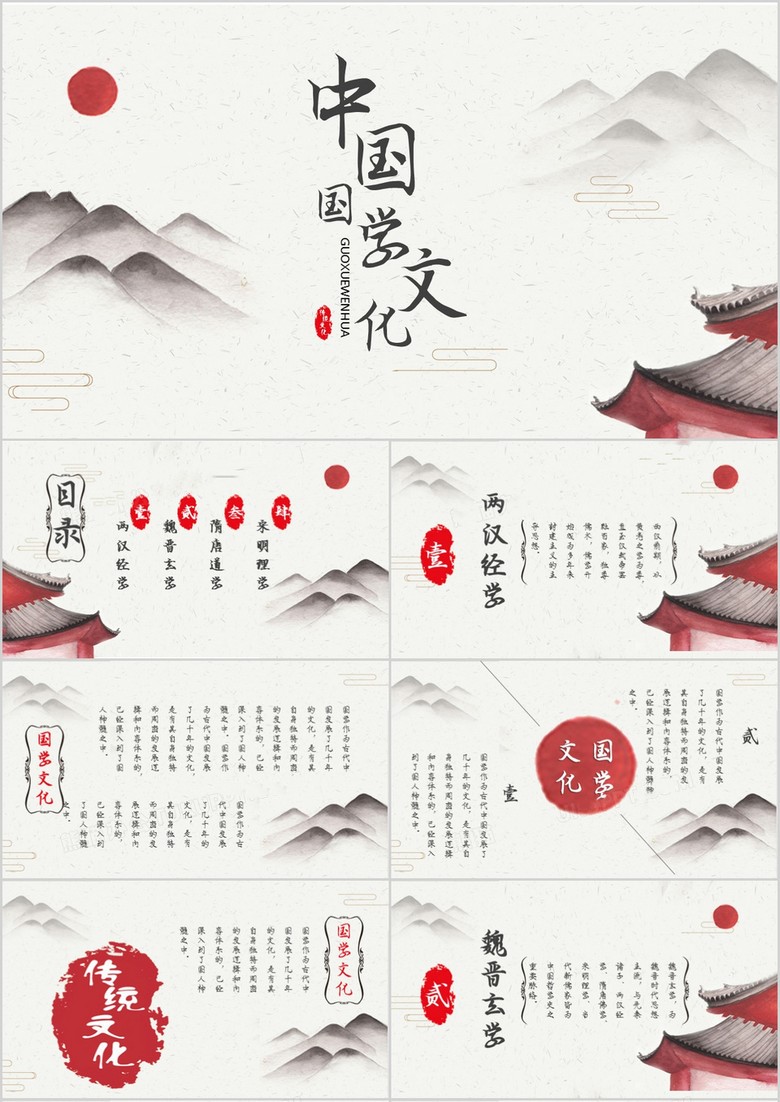 中国
国学文化
GUOXUEWENHUA
传统文化
目录
壹
两汉经学
贰
魏晋玄学
叁
隋唐道学
肆
宋明理学
壹
两汉经学
西汉前期，以
黄老之学为尊，
直至汉武帝罢
黜百家，独尊
儒术，儒学开
始成为多年来
封建主义的主
导思想。
国学文化
国学作为古代中
国发展了几十年
的文化，是有其
自身独特而周密
的发展逻辑和内
容体系的，已经
深入到了国人种
髓之中。国学作
为古代中国发展
了几十年的文化，
是有其自身独特
而周密的发展逻
辑和内容体系的，
已经深入到了国
人种髓之中。
国学作为古
代中国发展
了几十年的
文化，是有
其自身独特
而周密的发
展逻辑和内
容体系的，
已经深入到
了国人种髓
之中。
贰
国学作为古代中国发展
了几十年的文化，是有
其自身独特而周密的发
展逻辑和内容体系的，
已经深入到了国人种髓
之中。
国学
文化
壹
国学作为古代中国发展了
几十年的文化，是有其自
身独特而周密的发展逻辑
和内容体系的，已经深入
到了国人种髓之中。
国学文化
国学作为古代中
国发展了几十年
的文化，是有其
自身独特而周密
的发展逻辑和内
容体系的，已经
深入到了国人种
髓之中。
传统文化
贰
魏晋玄学
魏晋玄学，为
魏晋时代思想
主流，与先秦
诸子、两汉经
学、隋唐佛学、
宋明理学、当
代新儒家皆为
中国哲学史之
重要脉络。